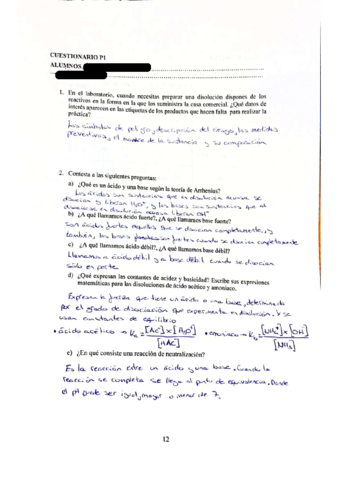 CUESTIONARIO P1
ALUMNOS:
1. En el laboratorio, cuando necesitas preparar una disolución dispones de los
reactivos en la forma en la que los suministra la casa comercial. ¿Qué datos de
interés aparecen en las etiquetas de los productos que hacen falta para realizar la
práctica?
Los símbolos de peligro, descripción del riesgo, las medidas
preventivas, el nombre de la sustancia y su composición.
2. Contesta a las siguientes preguntas:
a) ¿Qué es un ácido y una base según la teoría de Arrhenius?
Los ácidos son sustancias que en disolución acuosa se
disocian y liberan H3O+, y las bases son sustancias que al
disociarse en disolución acuosa liberan OH-
b) ¿A qué llamamos ácido fuerte?, ¿A qué llamamos base fuerte?
Son ácidos fuertes aquellos que se disocian completamente, y
también, las bases fuertes cuando se disocian completamente
c) ¿A qué llamamos ácido débil?, ¿A qué llamamos base débil?
Llamamos a ácido débil y a base débil cuando se disocian
sólo en parte
d) ¿Qué expresan las contantes de acidez y basicidad? Escribe sus expresiones
matemáticas para las disoluciones de ácido acético y amoníaco.
Expresan la fuerza que tiene un ácido o una base, determinado
por el grado de disociación que experimenta en disolución. Y se
usan constantes de equilibrio
• ácido acético → Ka = [Ac-] x [H3O+] / [HAc] • amoníaco → Kb = [NH4+] x [OH-] / [NH3]
e) ¿En qué consiste una reacción de neutralización?
Es la reacción entre un ácido y una base. Cuando la
reacción se completa se llega al punto de equivalencia. Donde
el pH puede ser igual, mayor o menor de 7.
12